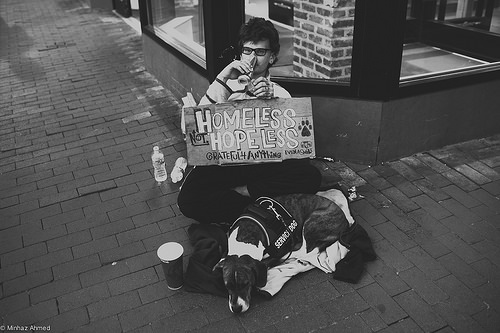 HOMELESS
NOT HOPELESS
GRATEFUL 4 ANYTHING
SERVICE DOG
© Minhaz Ahmed